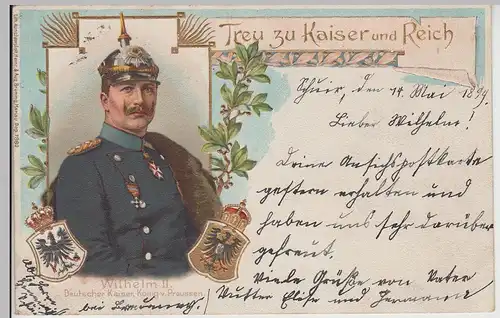 Treu zu Kaiser und Reich
den 14. Mai 1899.
Lieber Wilhelm!
Deine Ansichspostkarte
gestern erhalten und
haben uns sehr darüber
gefreut.
Viele Grüße von Vater
Mutter Elise und Hermann
Wilhelm II.
Deutscher Kaiser, König v. Preussen
bei